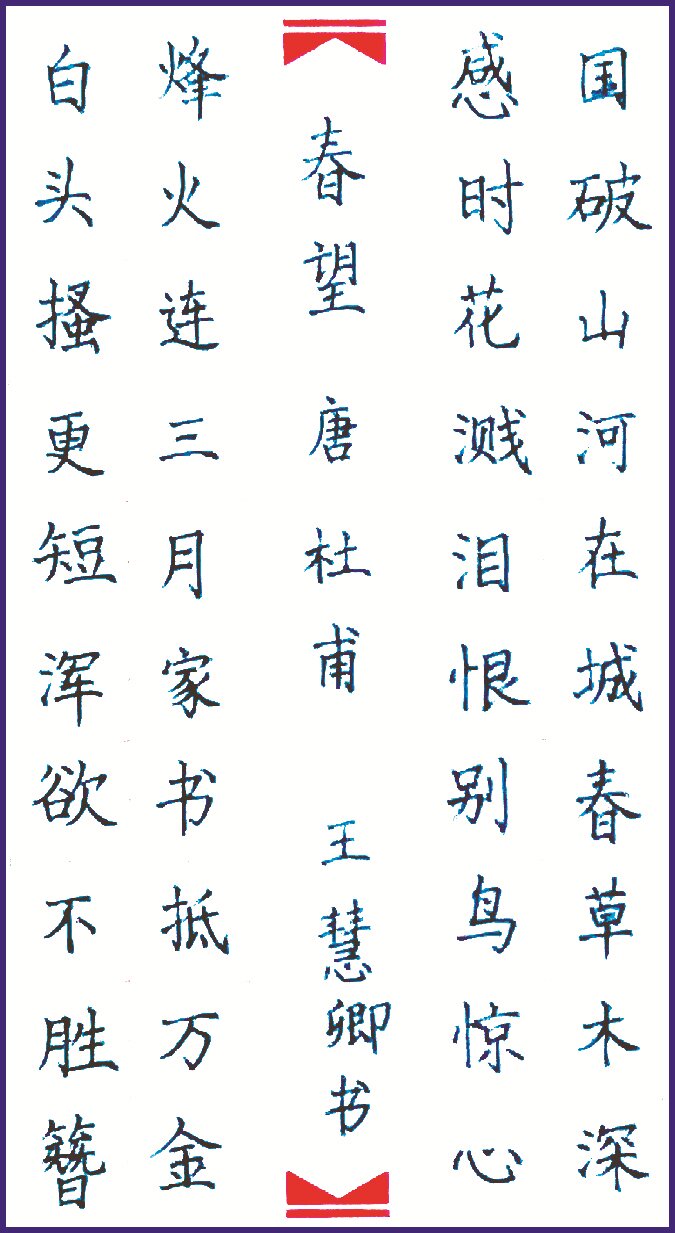 国破山河在城春草木深
感时花溅泪恨别鸟惊心
春望 唐 杜甫 王慧卿书
烽火连三月家书抵万金
白头搔更短浑欲不胜簪